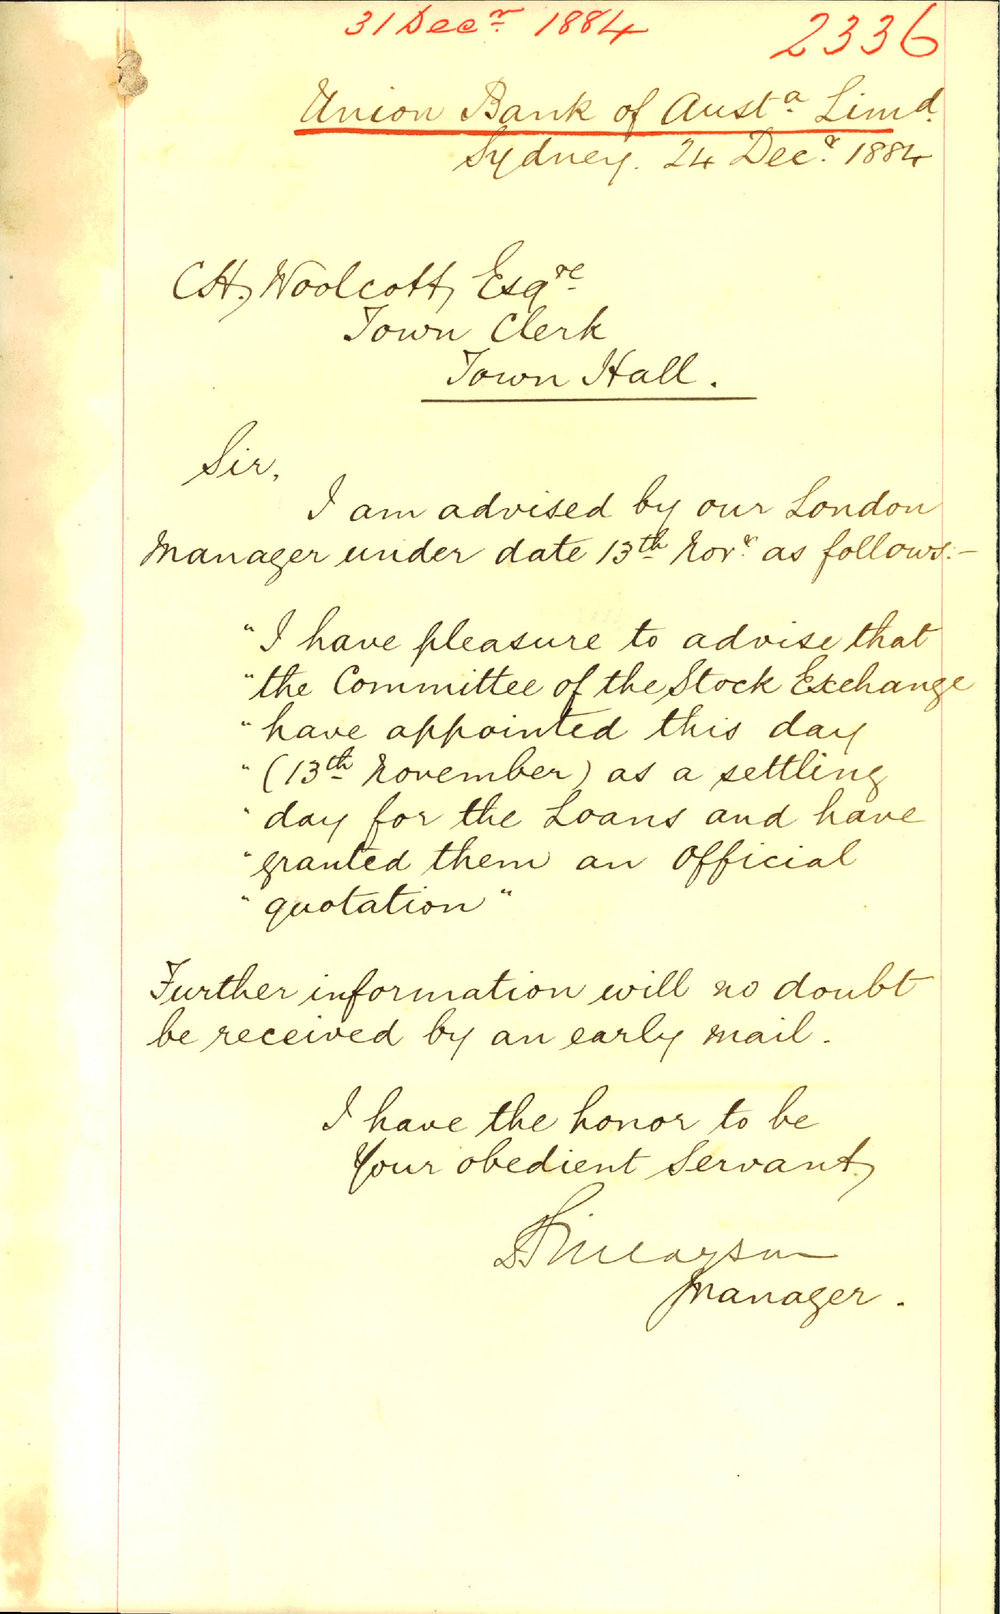 31 Decr 1884
2336
Union Bank of Austa. Limd.
Sydney. 24 Decr. 1884
C.H. Woolcott, Esqre.
Town Clerk
Town Hall.
Sir,
I am advised by our London
Manager under date 13th Novr. as follows:-
"I have pleasure to advise that
"the Committee of the Stock Exchange
"have appointed this day
"(13th November) as a settling
"day for the Loans and have
"granted them an Official
"quotation"
Further information will no doubt
be received by an early mail.
I have the honor to be
Your obedient Servant,
Manager.